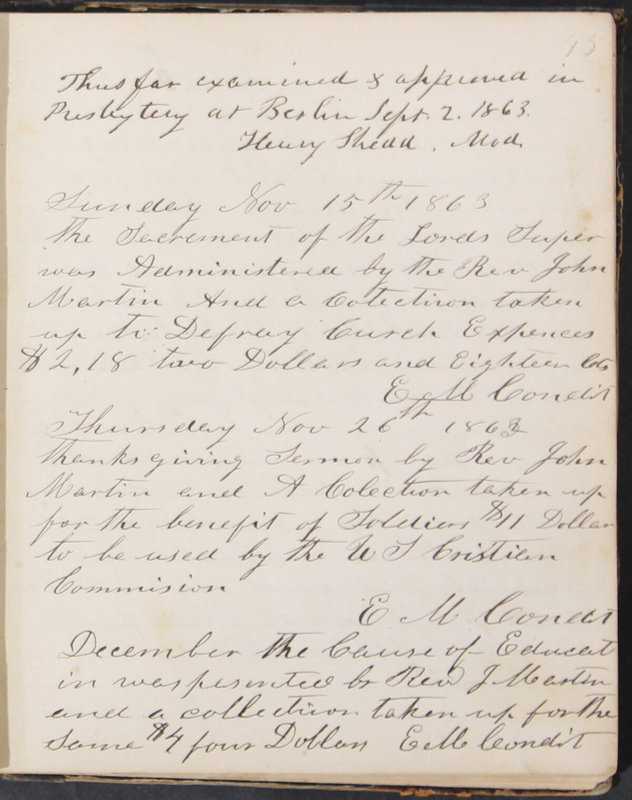 43
Thus far examined & approved in
Presbytery at Berlin Sept. 2. 1863.
Henry Shedd, Mod.
Sunday Nov 15th 1863
the Sacrement of the Lords Super
was Administered by the Rev John
Martin And a Colection taken
up to Defray Curch Expences
$2,18 two Dollars and Eighteen Cts
E M Condit
Thursday Nov 26th 1863
thanksgiving Sermon by Rev John
Martin and A Colection taken up
for the benefit of Soldiers $11 Dollar
to be used by the U S Cristian
Commision
E M Condit
December the Cause of Educat
in was pesented br Rev J Martin
and a collection taken up for the
Same $4 four Dollars E M Condit